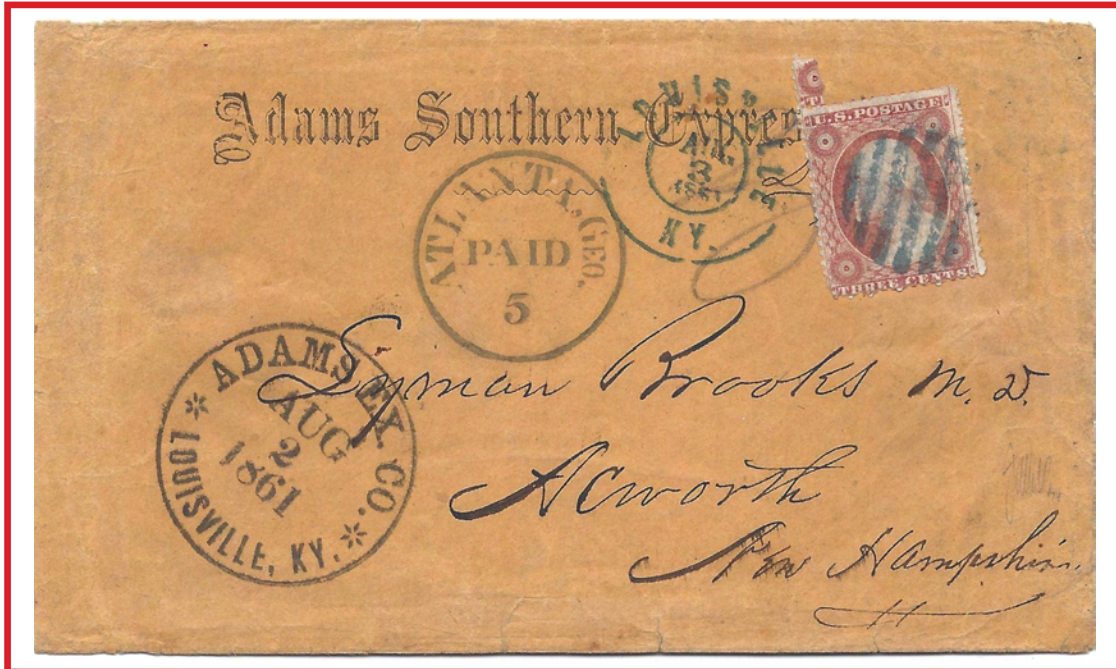 Adams Southern Express
LOUISVILLE
AUG.
3
1861
KY.
U.S. POSTAGE
THREE CENTS
ATLANTA, GEO.
PAID
5
ADAMS EX. CO.
AUG
2
1861
LOUISVILLE, KY.
Lyman Brooks M.D.
Acworth
New Hampshire